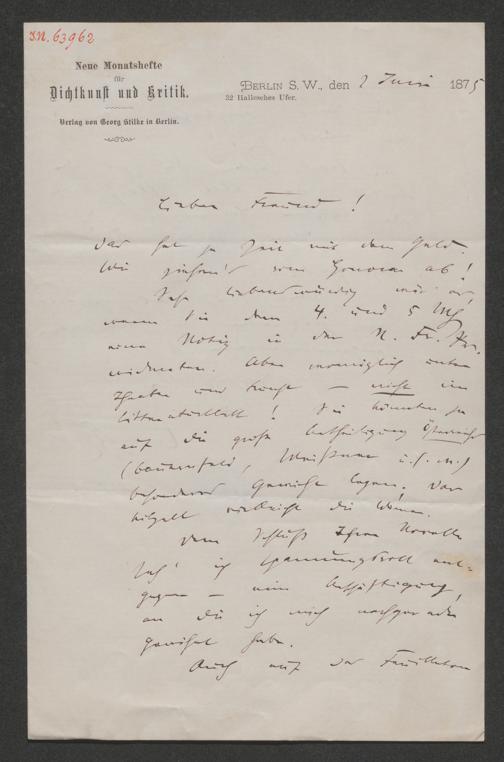 I.N. 63962
Neue Monatshefte
für
Dichtkunst und Kritik.
Verlag von Georg Stilke in Berlin.
BERLIN S. W., den 2 Juni 1875
32 Hallesches Ufer.
Lieber Freund!
Das hat ja Zeit mit dem Geld.
Wir ziehen's vom Honorar ab!
Sehr liebenswürdig wär es,
wenn Sie dem 4. und 5 Hft
eine Notiz in der N. Fr. Pr.
widmeten. Aber womöglich unter
Theater und Kunst – nicht im
Litteraturblatt! Sie könnten ja
auf die große Betheiligung Österreichs
(Bauernfeld, u. s. w.)
besonderes Gewicht legen. Das
kitzelt vielleicht die Wiener.
Dem Schluß Ihrer Novelle
seh' ich spannungsvoll ent-
gegen – eine Beschäftigung,
an die ich mich nachgerade
gewöhnt habe.
Auch auf das Feuilleton